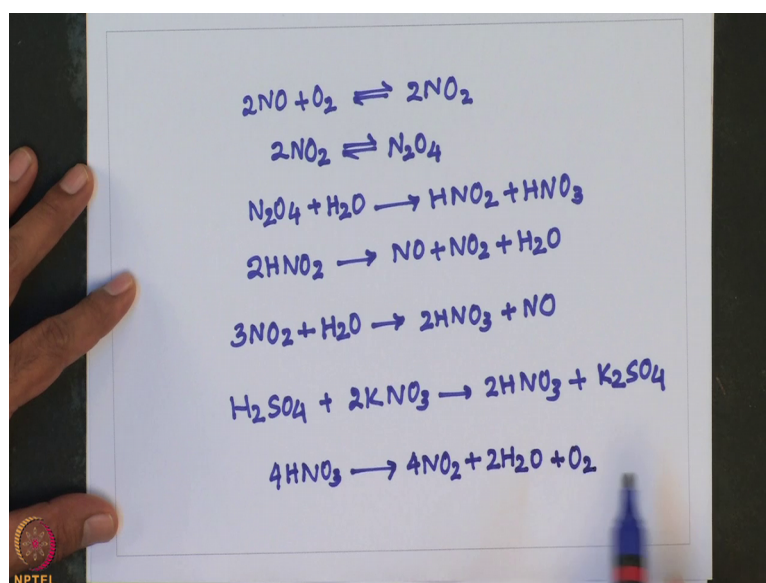 2NO + O2 ⇌ 2NO2
2NO2 ⇌ N2O4
N2O4 + H2O ⟶ HNO2 + HNO3
2HNO2 ⟶ NO + NO2 + H2O
3NO2 + H2O ⟶ 2HNO3 + NO
H2SO4 + 2KNO3 ⟶ 2HNO3 + K2SO4
4HNO3 ⟶ 4NO2 + 2H2O + O2
NPTEL